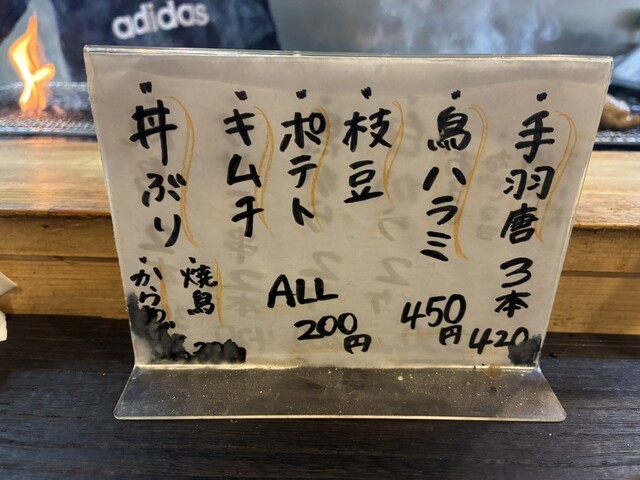 adidas
手羽唐
3本
420
鳥ハラミ
450円
枝豆
ポテト
キムチ
ALL
200円
丼ぶり
焼鳥
からあげ